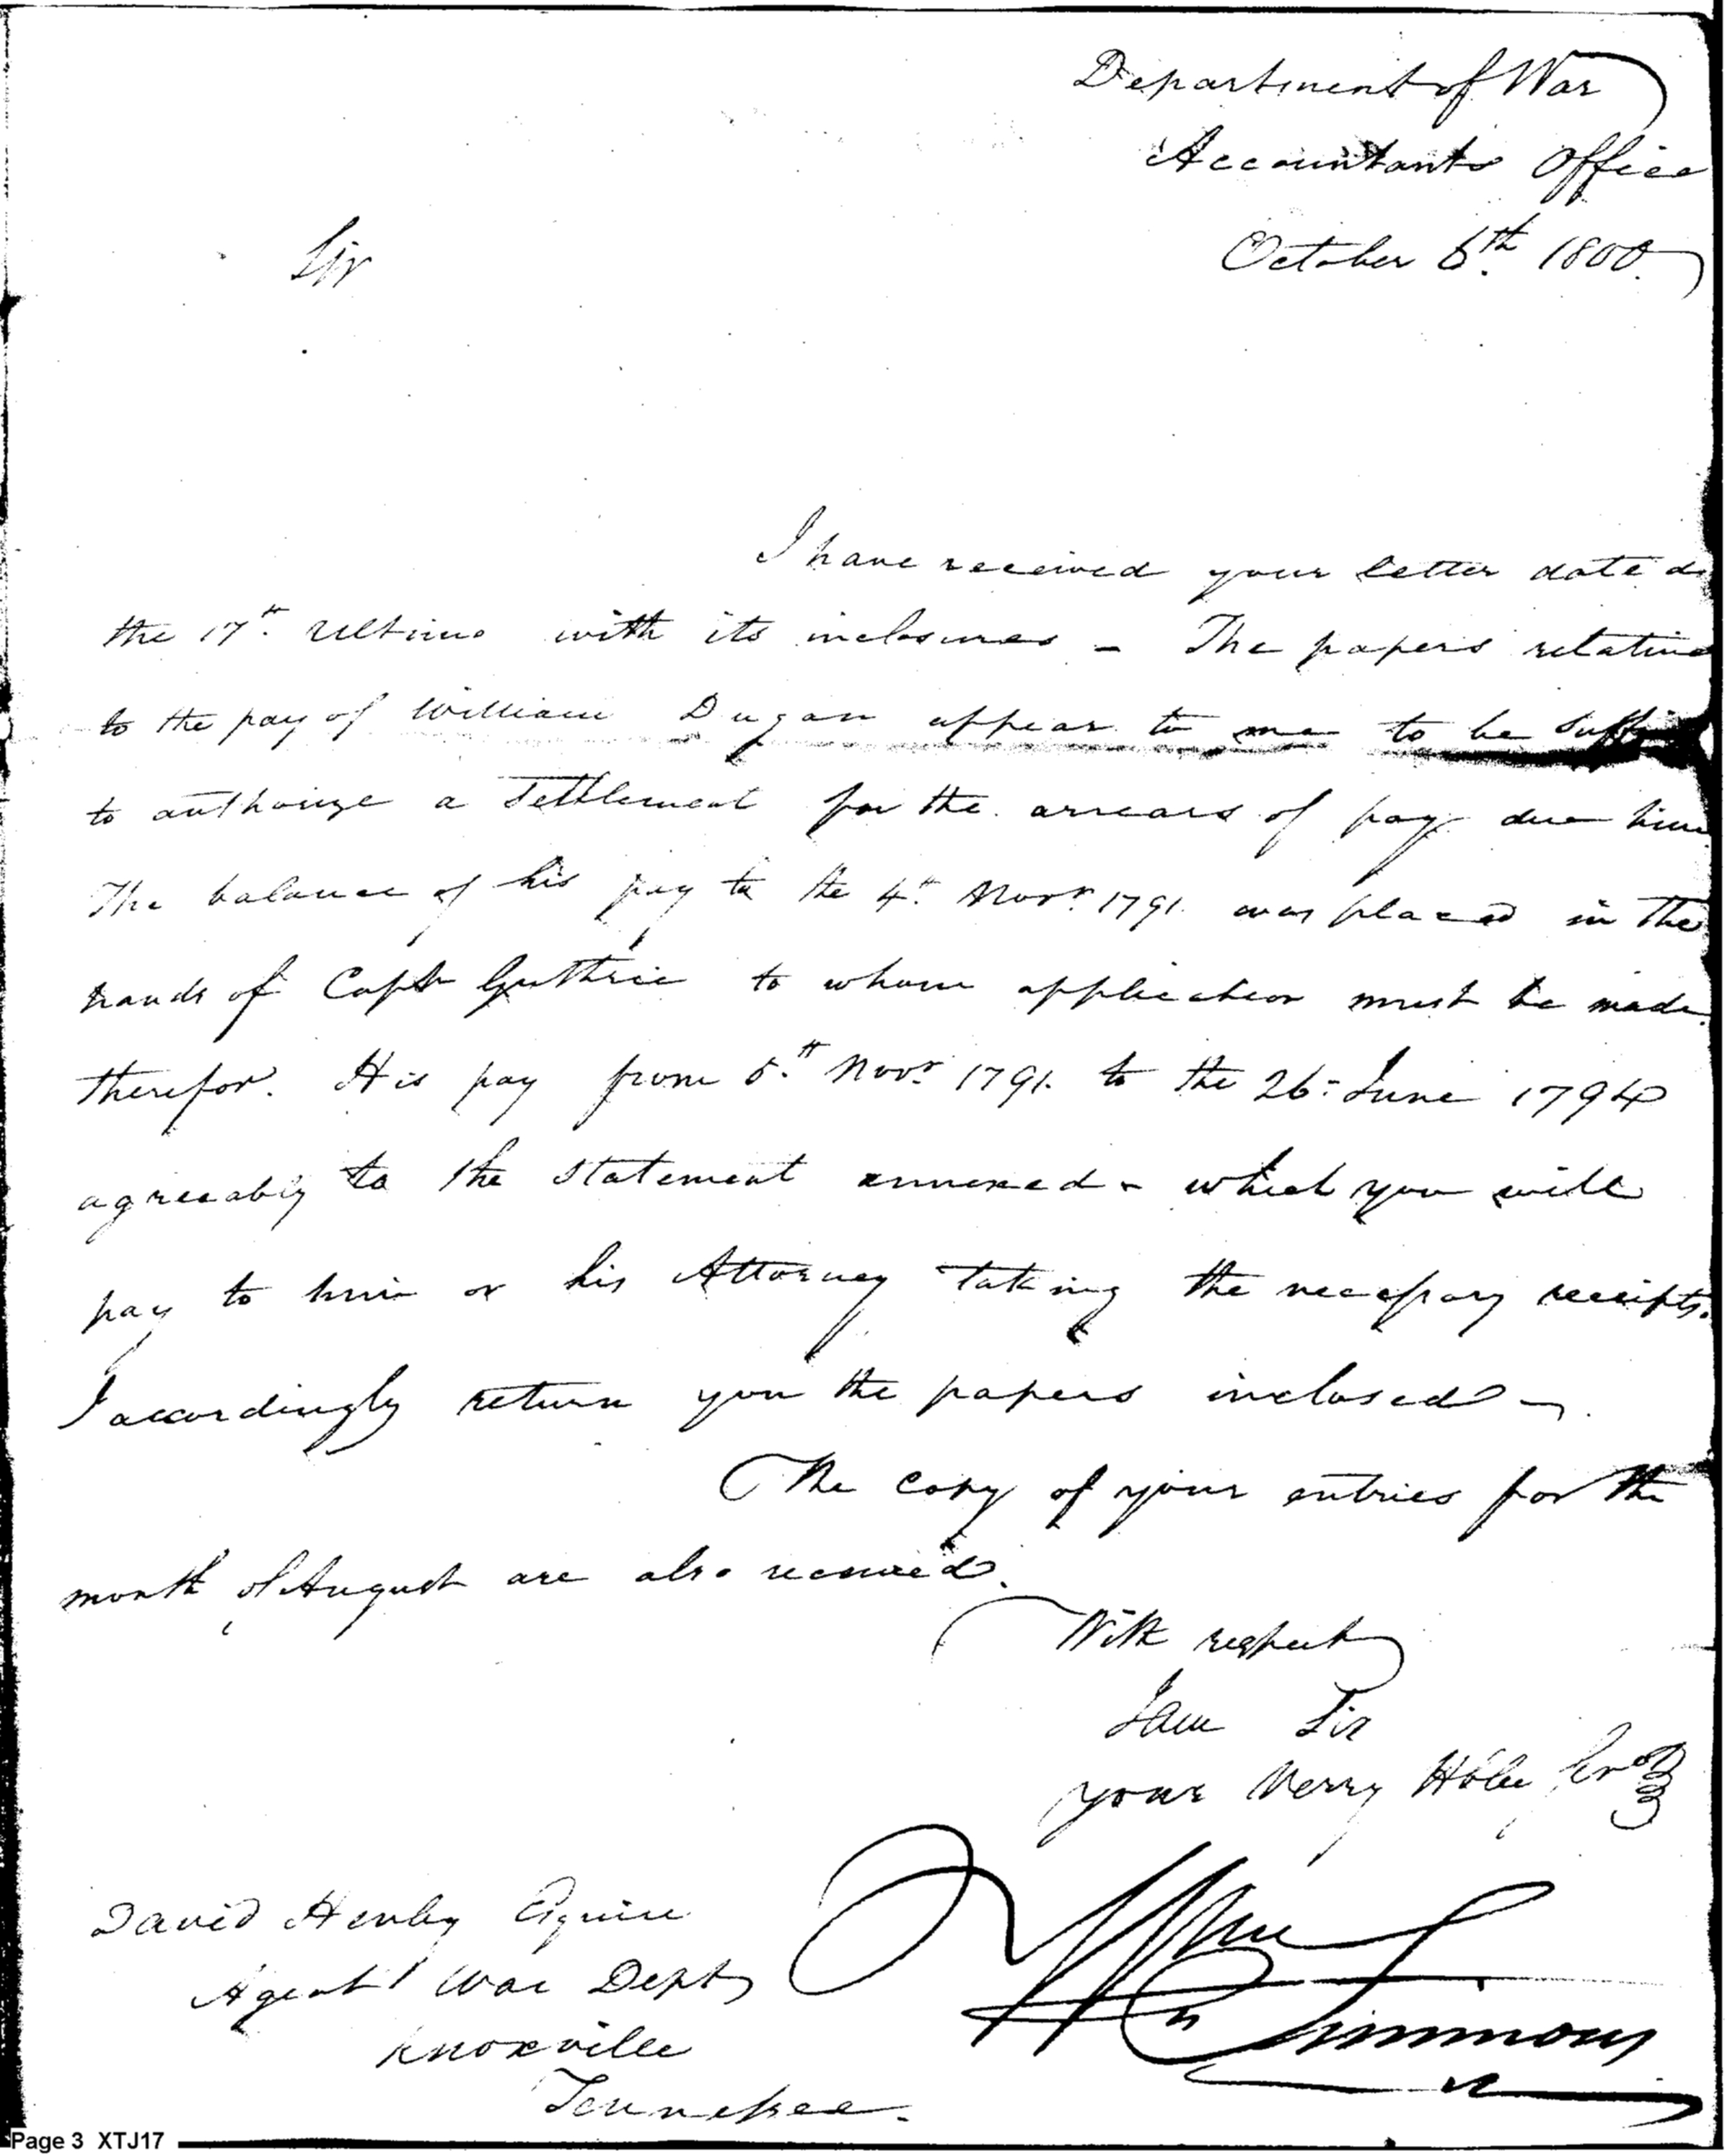 Department of War
Accountants Office
October 6th 1800.
Sir
I have received your letter dated
the 17th. ultimo with its inclosures - The papers relative
to the pay of William Dugan appear to me to be suffi
to authorize a Settlement for the arrears of pay due him
The balance of his pay to the 4th. Novr. 1791. was placed in the
hands of Capt Guthrie to whom application must be made
therefor. His pay from 5th. Novr. 1791. to the 26th June 1794
agreeably to the statement annexed - which you will
pay to him or his Attorney taking the necessary receipts.
I accordingly return you the papers inclosed -
The copy of your entries for the
month of August are also received.
With respect
I am Sir
Your Verry Hble Srvt
Wm Simmons
David Henley Esquire
Agent War Dept
Knoxville
Tennessee.
Page 3 XTJ17